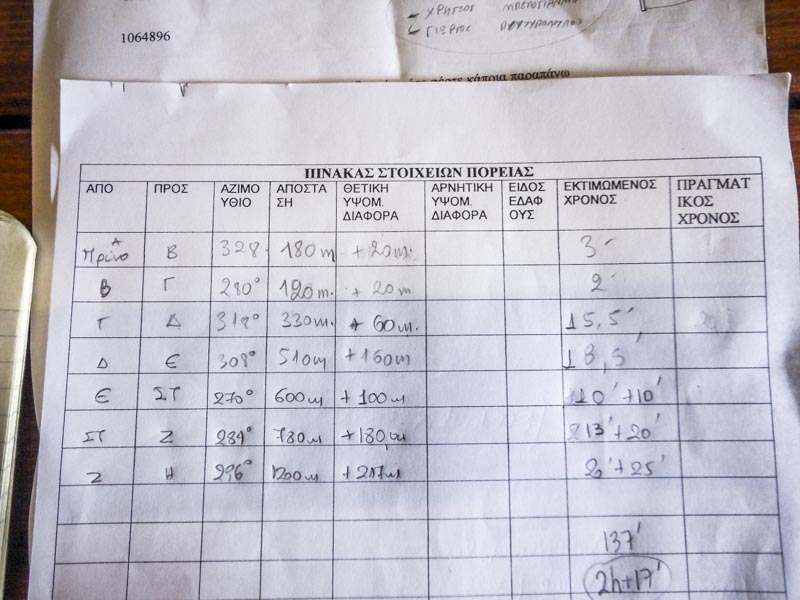 ΧΡΗΣΤΟΣ
1064896
ΓΙΩΡΓΟΣ
κάποια παραπάνω
ΠΙΝΑΚΑΣ ΣΤΟΙΧΕΙΩΝ ΠΟΡΕΙΑΣ
ΑΠΟ ΠΡΟΣ ΑΖΙΜΟΥΘΙΟ ΑΠΟΣΤΑΣΗ ΘΕΤΙΚΗ ΥΨΟΜ. ΔΙΑΦΟΡΑ ΑΡΝΗΤΙΚΗ ΥΨΟΜ. ΔΙΑΦΟΡΑ ΕΙΔΟΣ ΕΔΑΦΟΥΣ ΕΚΤΙΜΩΜΕΝΟΣ ΧΡΟΝΟΣ ΠΡΑΓΜΑΤΙΚΟΣ ΧΡΟΝΟΣ
Α Πρίνο Β 328° 180m +20m. 3'
Β Γ 280° 120m. +20m 2'
Γ Δ 318° 330m. +60m. 5,5'
Δ Ε 308° 510m +160m 8,5'
Ε ΣΤ 270° 600m +100m 10'+10'
ΣΤ Ζ 284° 780m +180m 13'+20'
Ζ Η 296° 1200m +217m 20'+25'
137'
2h+17'